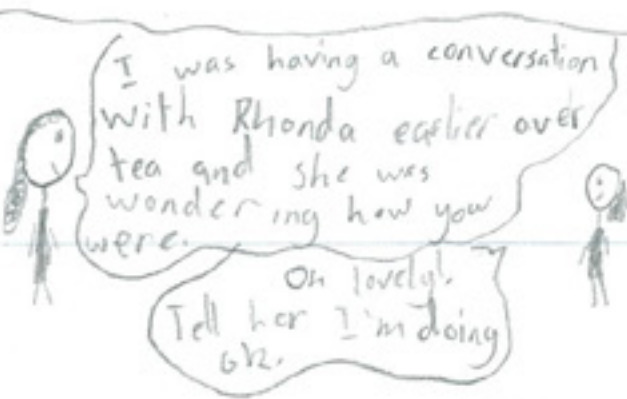 I was having a conversation
with Rhonda earlier over
tea and she was
wondering how you
were.
Oh lovely!
Tell her I'm doing
ok.